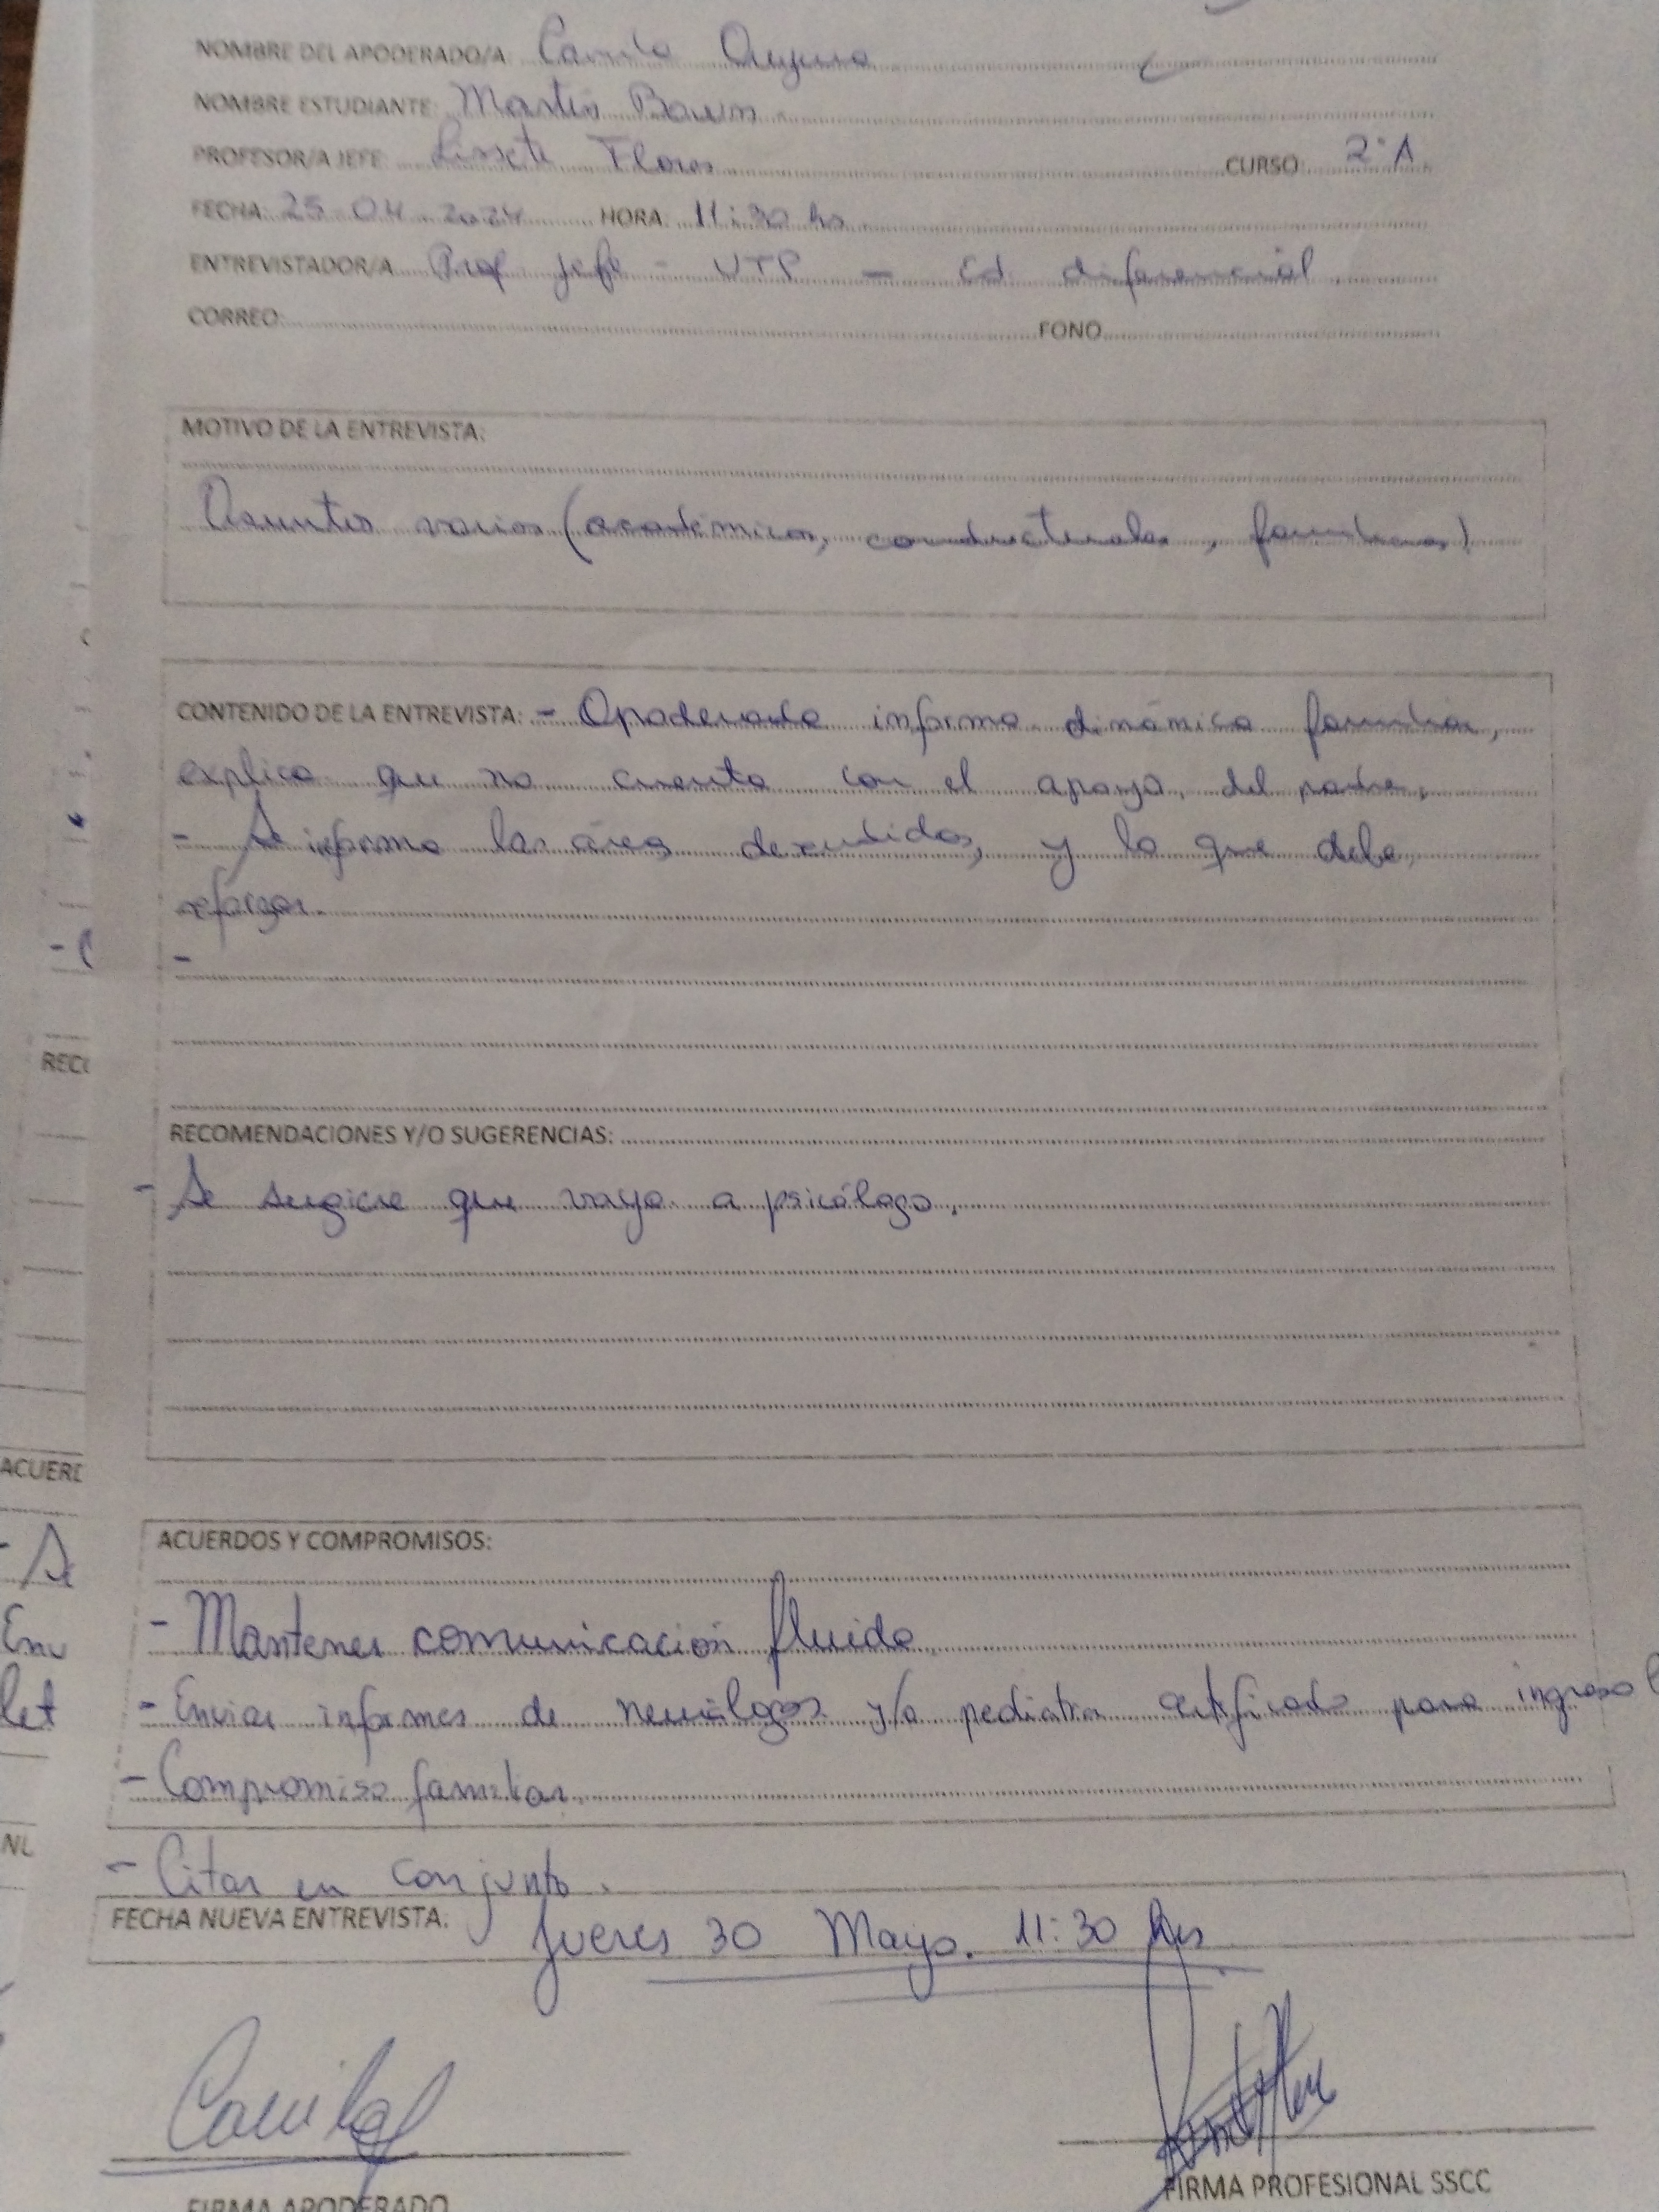 NOMBRE DEL APODERADO/A: Camila
NOMBRE ESTUDIANTE: Martín
PROFESOR/A JEFE: Lissete Flores CURSO: 2°A
FECHA: 25 04 2024 HORA: 11:30 hs
ENTREVISTADOR/A Prof jefe - UTP - Ed diferencial
CORREO: FONO
MOTIVO DE LA ENTREVISTA:
Asuntos varios (académicos, conductuales, familiares)
CONTENIDO DE LA ENTREVISTA: - Apoderada informa dinámica familiar,
explica que no cuenta con el apoyo del padre.
- Se informa las áreas descendidas, y lo que debe
reforzar.
-
RECOMENDACIONES Y/O SUGERENCIAS:
- Se sugiere que vaya a psicólogo.
ACUERDOS Y COMPROMISOS:
- Mantener comunicación fluida
- Enviar informes de y/o pediatra certificado para ingreso
- Compromiso familiar
- Citar en conjunto.
FECHA NUEVA ENTREVISTA: Jueves 30 Mayo. 11:30 hrs
Camila
FIRMA APODERADO
FIRMA PROFESIONAL SSCC
RECO
ACUERD
- Se
Env
let
NU